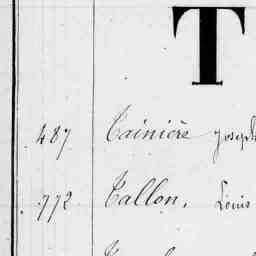 T
487 Tainière Joseph
772 Tallon, Louis